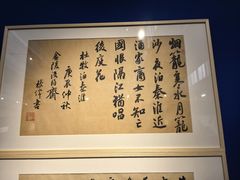 烟籠寒水月籠
沙夜泊秦淮近
酒家商女不知亡
國恨隔江猶唱
後庭花
杜牧泊秦淮
庚辰仲秋
金陵
書